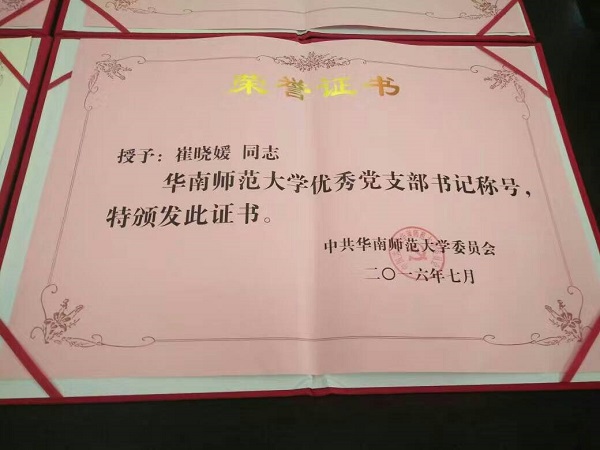 荣誉证书
授予：崔晓媛 同志
华南师范大学优秀党支部书记称号，
特颁发此证书。
中共华南师范大学委员会
二〇一六年七月